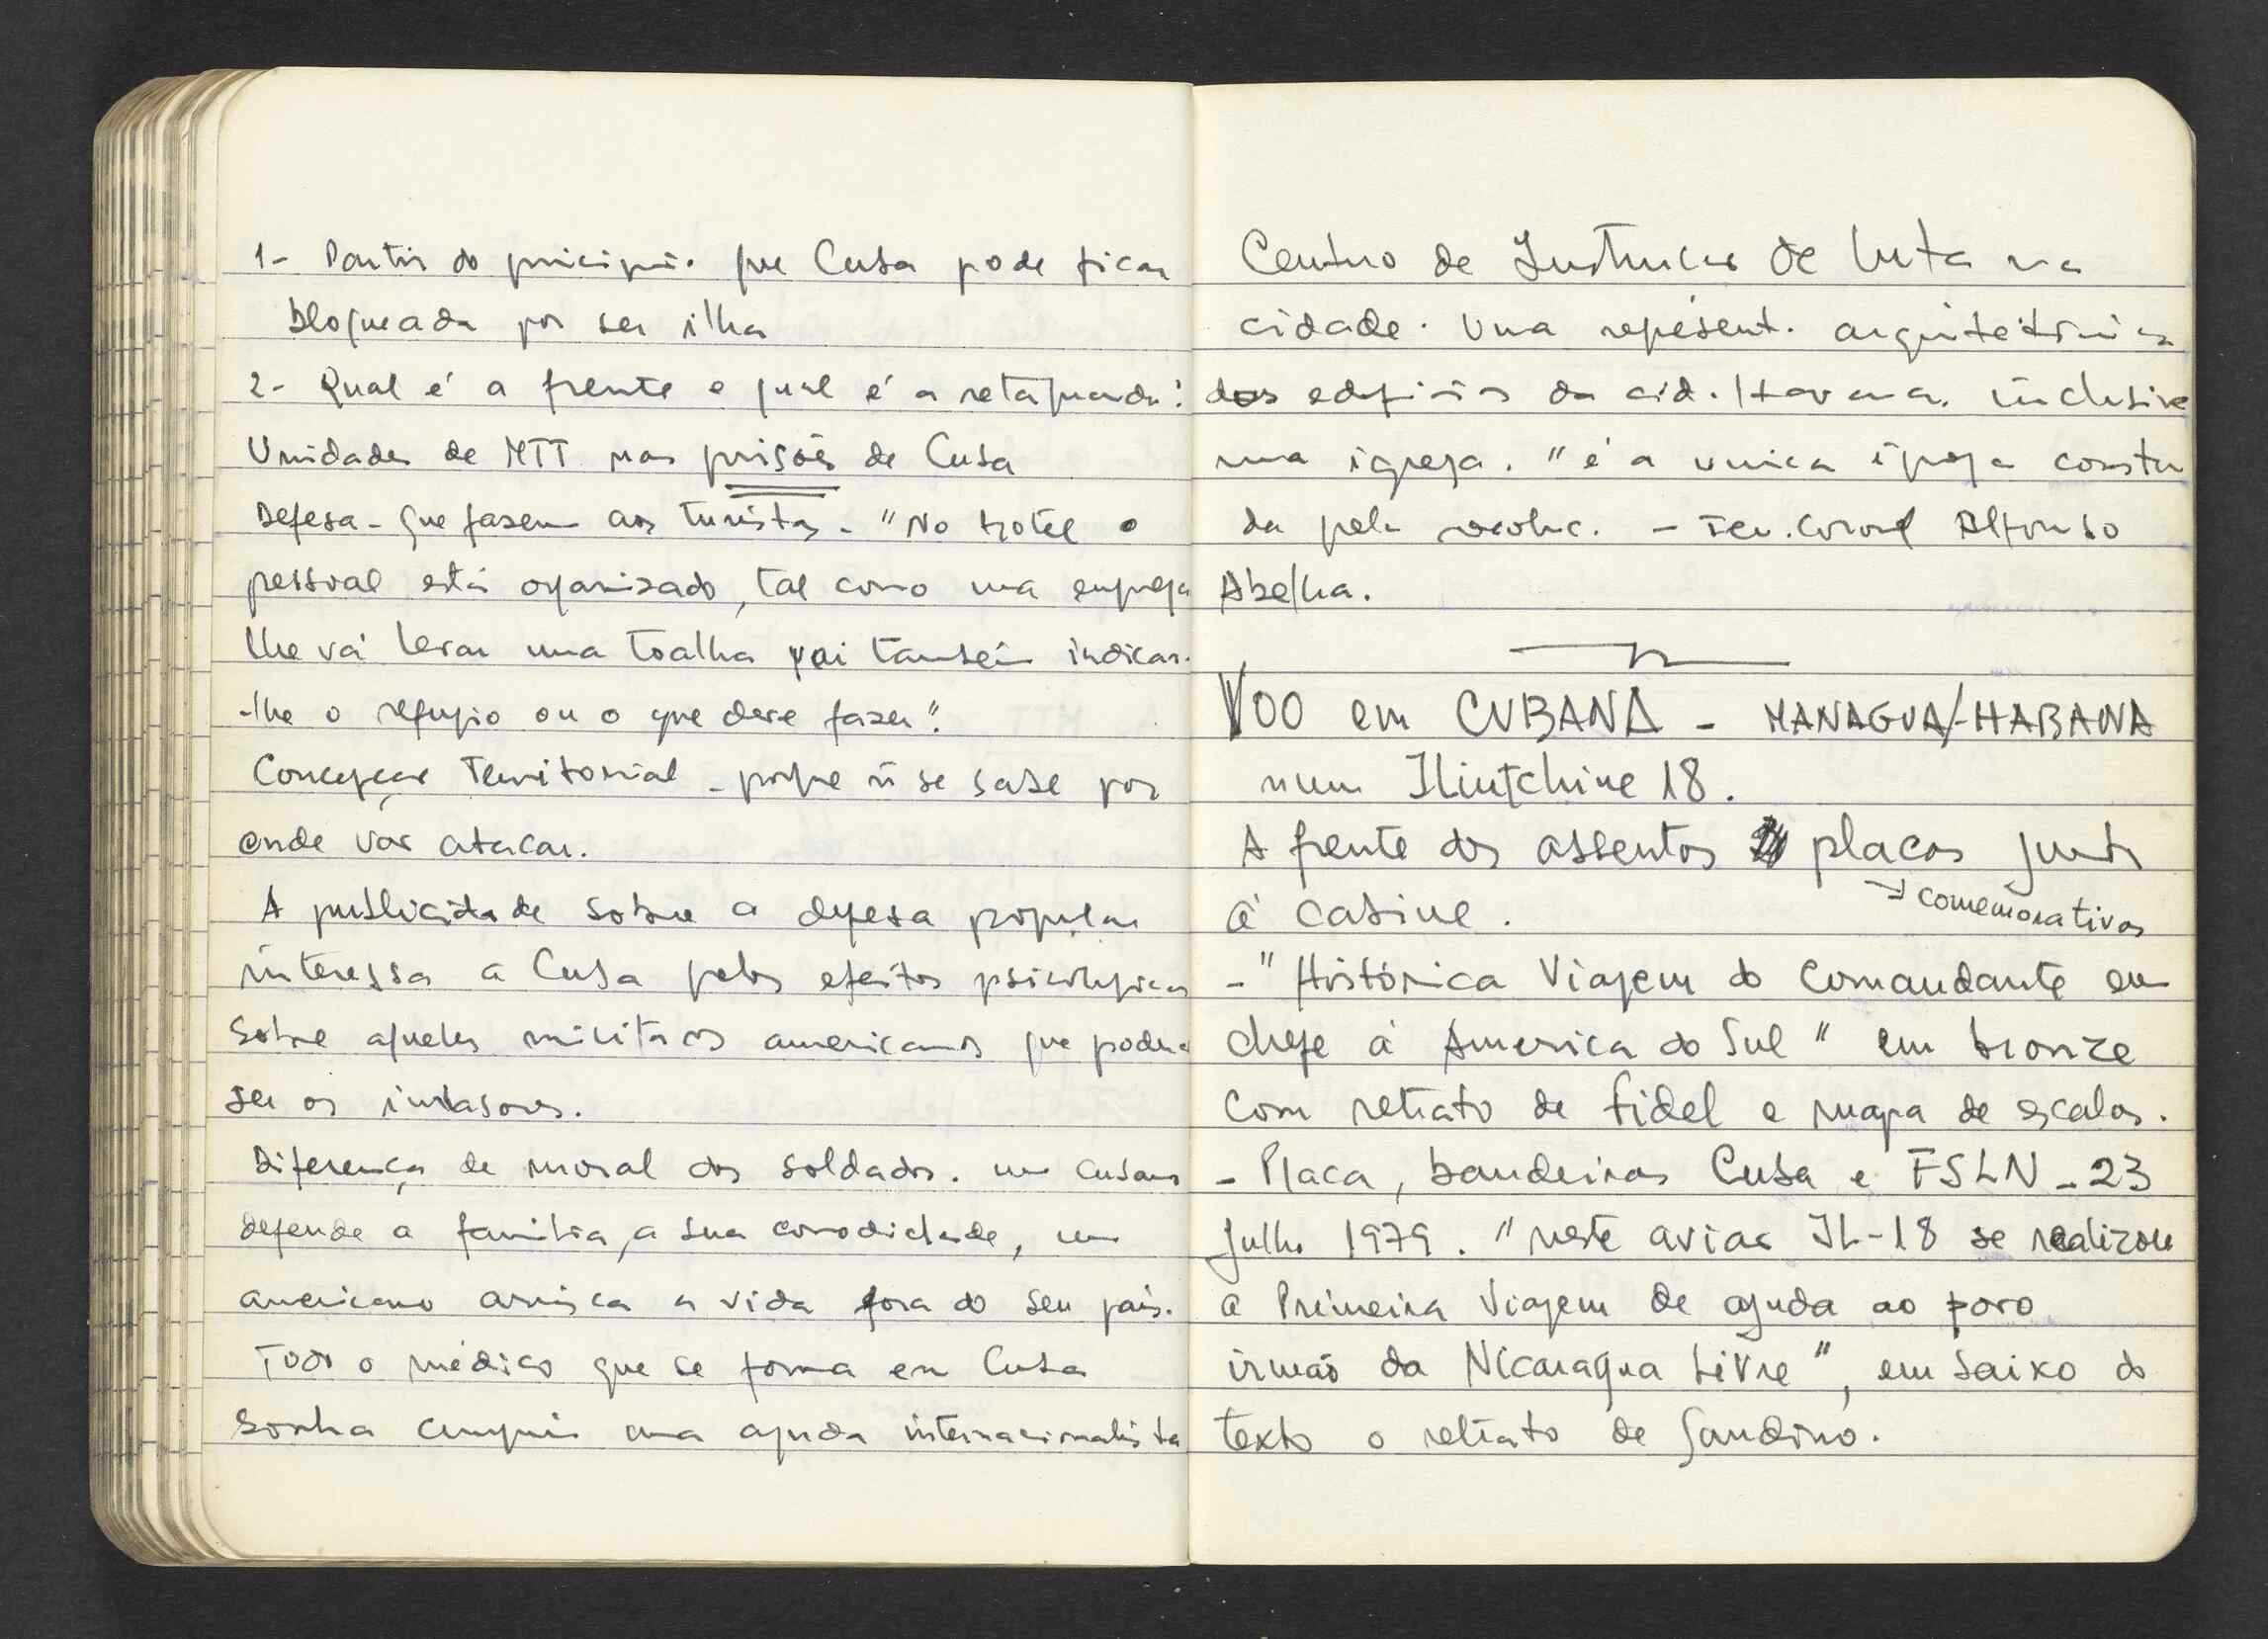 1- Partir do principio que Cuba pode ficar
bloqueada por ser ilha
2- Qual é a frente e qual é a retaguarda?
Unidades de MTT nas prisões de Cuba
Defesa - que fazem aos turistas - "No hotel o
pessoal está organizado, tal como uma empreja
lhe vá levar uma toalha vai também indicar-
-lhe o refugio ou o que deve fazer".
Concepção Territorial - porque ñ se sabe por
onde vão atacar.
A publicidade sobre a defesa popular
interessa a Cuba pelos efeitos psicologicos
sobre aqueles militares americanos que podem
ser os invasores.
Diferença de moral dos soldados. um cubano
defende a familia, a sua comodidade, um
americano arrisca a vida fora do seu pais.
Todo o médico que se forma em Cuba
sonha cumprir uma ajuda internacionalista
Centro de Instrucão de luta na
cidade. Uma represent. arquitetónica
dos edificios da cid. Havana. inclusive
uma igreja. "é a unica igreja constru
da pela revoluc. - Ten. Coronel Alfonso
Abelha.
VOO em CUBANA - MANAGUA/-HABANA
num Iliutchine 18.
A frente dos assentos placas junto
à cabine. → comemorativas
- "Histórica Viagem do Comandante em
chefe à America do Sul" em bronze
com retrato de Fidel e mapa de escalas.
- Placa, bandeiras Cuba e FSLN - 23
Julho 1979. "neste avião IL-18 se realizou
a Primeira Viagem de ajuda ao povo
irmão da Nicaragua Livre", em baixo do
texto o retrato de Sandino.